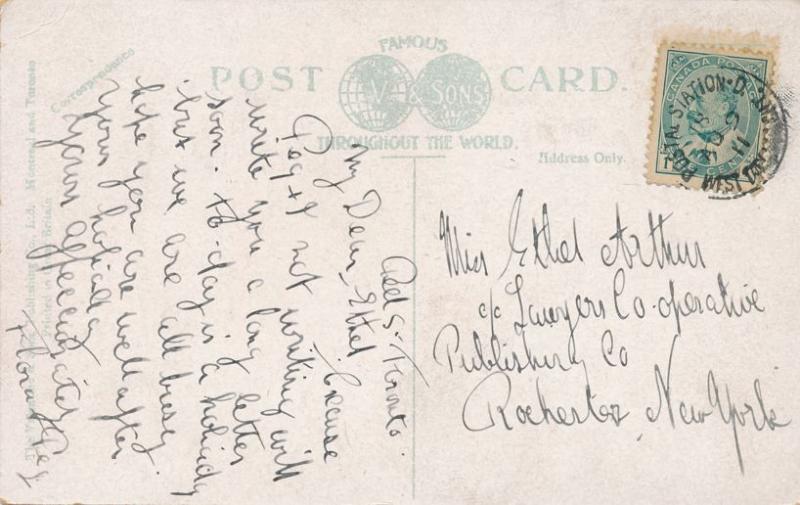 FAMOUS
POST CARD.
V & SONS
THROUGHOUT THE WORLD.
Address Only.
Correspondence
Publishing Co., Ltd. Montreal and Toronto
Printed in Britain
CANADA POSTAGE
CENT
POSTAL STATION D
11
St Toronto.
My Dear Ethel Excuse
Peg & I not writing will
write you a long letter
soon. to-day is a holiday
but we are all busy
hope you are well after
your holiday
yours affectionately
Flora & Peg
Miss Ethel Arthur
c/o Lawyers Co-operative
Publishing Co
Rochester New York